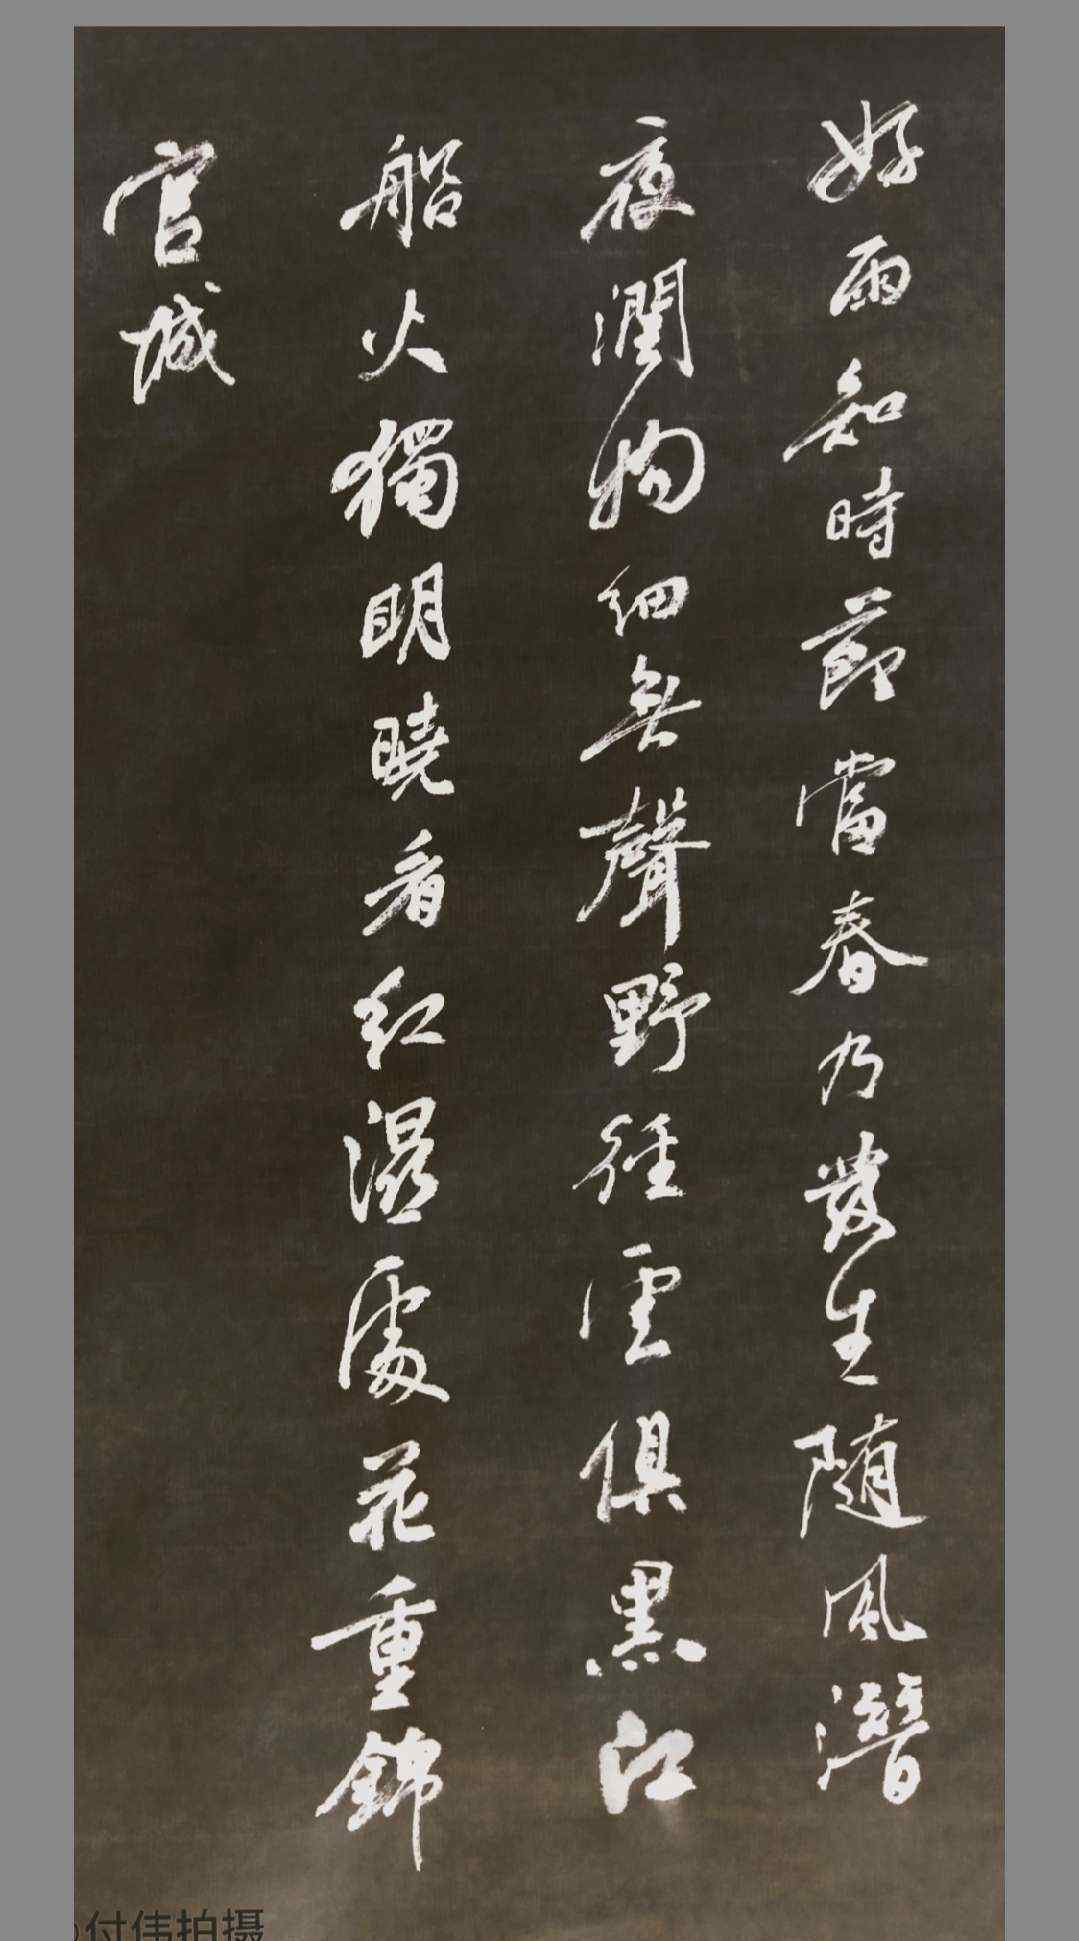 好雨知時節當春乃發生随風潛
夜潤物細無聲野徑雲俱黑江
船火獨明曉看紅濕處花重錦
官城
付伟拍摄